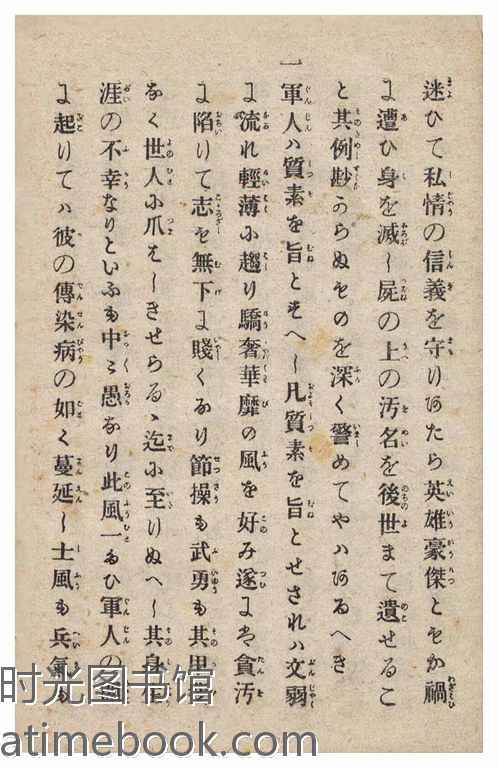 迷ひて私情の信義を守りあたら英雄豪傑ともか禍
に遭ひ身を滅し屍の上の汚名を後世まて遺せるこ
と其例尠からぬものを深く警めてやはあるへき
一軍人ハ質素を旨とすへし凡質素を旨とせされハ文弱
に流れ輕薄に趨り驕奢華靡の風を好み遂にハ貪汚
に陷りて志も無下に賤くなり節操も武勇も其甲
なく世人に爪はしきせらるゝ迄に至りぬへし其身
涯の不幸なりといふも中々愚なり此風一たひ軍人の
に起りてハ彼の傳染病の如く蔓延し士風も兵氣
时光图书馆
atimebook.com